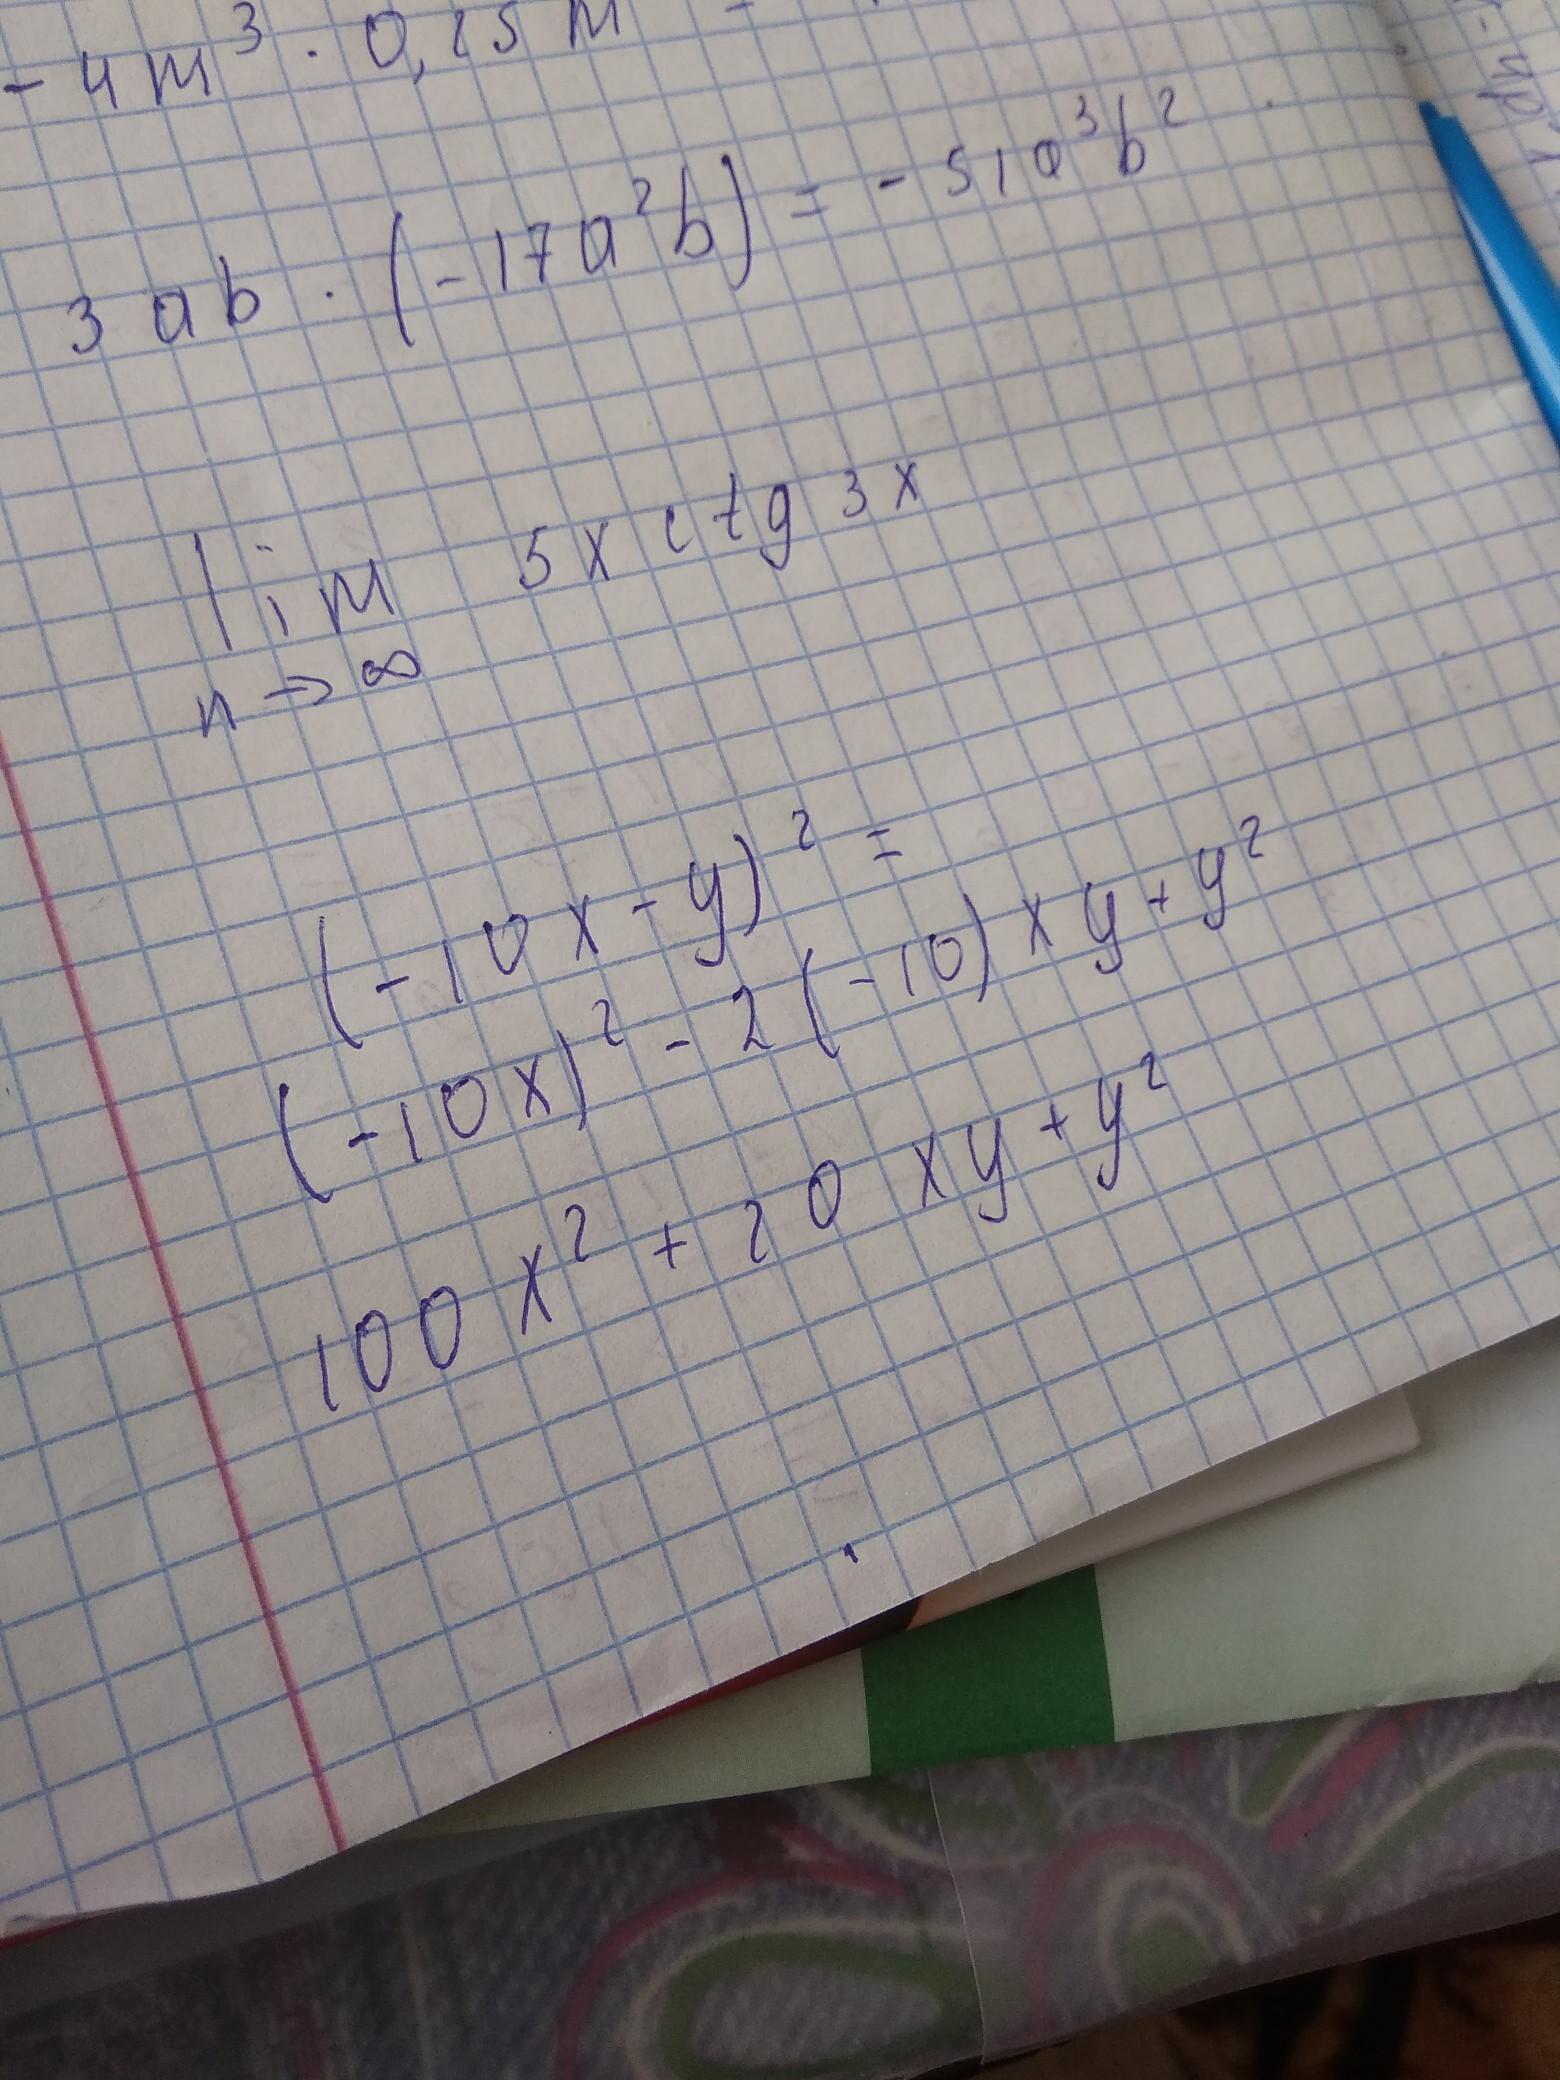 - 4m³ · 0,25m =
3ab · (-17a²b) = - 51a³b²
lim 5x ctg 3x
n → ∞
(-10x - y)² =
(-10x)² - 2(-10)xy + y²
100x² + 20xy + y²